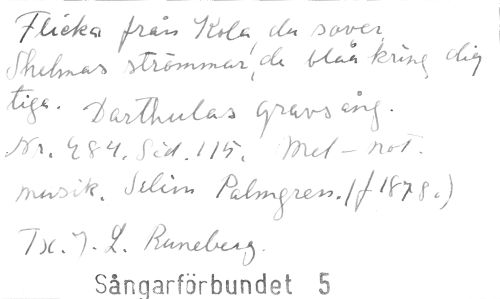 Flicka från Kola, du sover,
Skelmas strömmar, de blåa kring dig
tiga. Darthulas gravsång.
Nr. 484. Sid. 115. Mel-not.
musik. Selim Palmgren. (f 1878.)
Tx. J. L. Runeberg.
Sångarförbundet 5